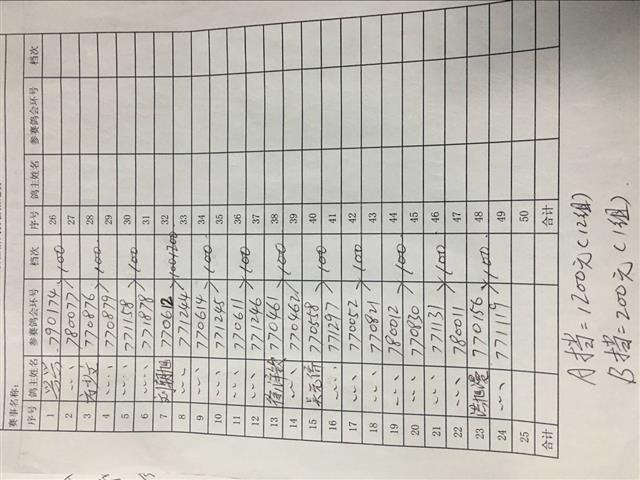 赛事名称：
序号 鸽主姓名 参赛鸽会环号 档次 序号 鸽主姓名 参赛鸽会环号 档次
1 790174 26
2 780077 100 27
3 770876 28
4 770879 100 29
5 771158 30
6 771878 100 31
7 770612 32
8 771244 100+200 33
9 770614 34
10 771245 100 35
11 770611 36
12 771246 100 37
13 770461 38
14 770462 100 39
15 吴元衍 770558 40
16 771297 100 41
17 770052 42
18 770821 100 43
19 780012 44
20 770830 100 45
21 771131 46
22 780011 100 47
23 770156 48
24 771119 100 49
25 50
合计 合计
A挡=1200元(12组)
B挡=200元(1组)